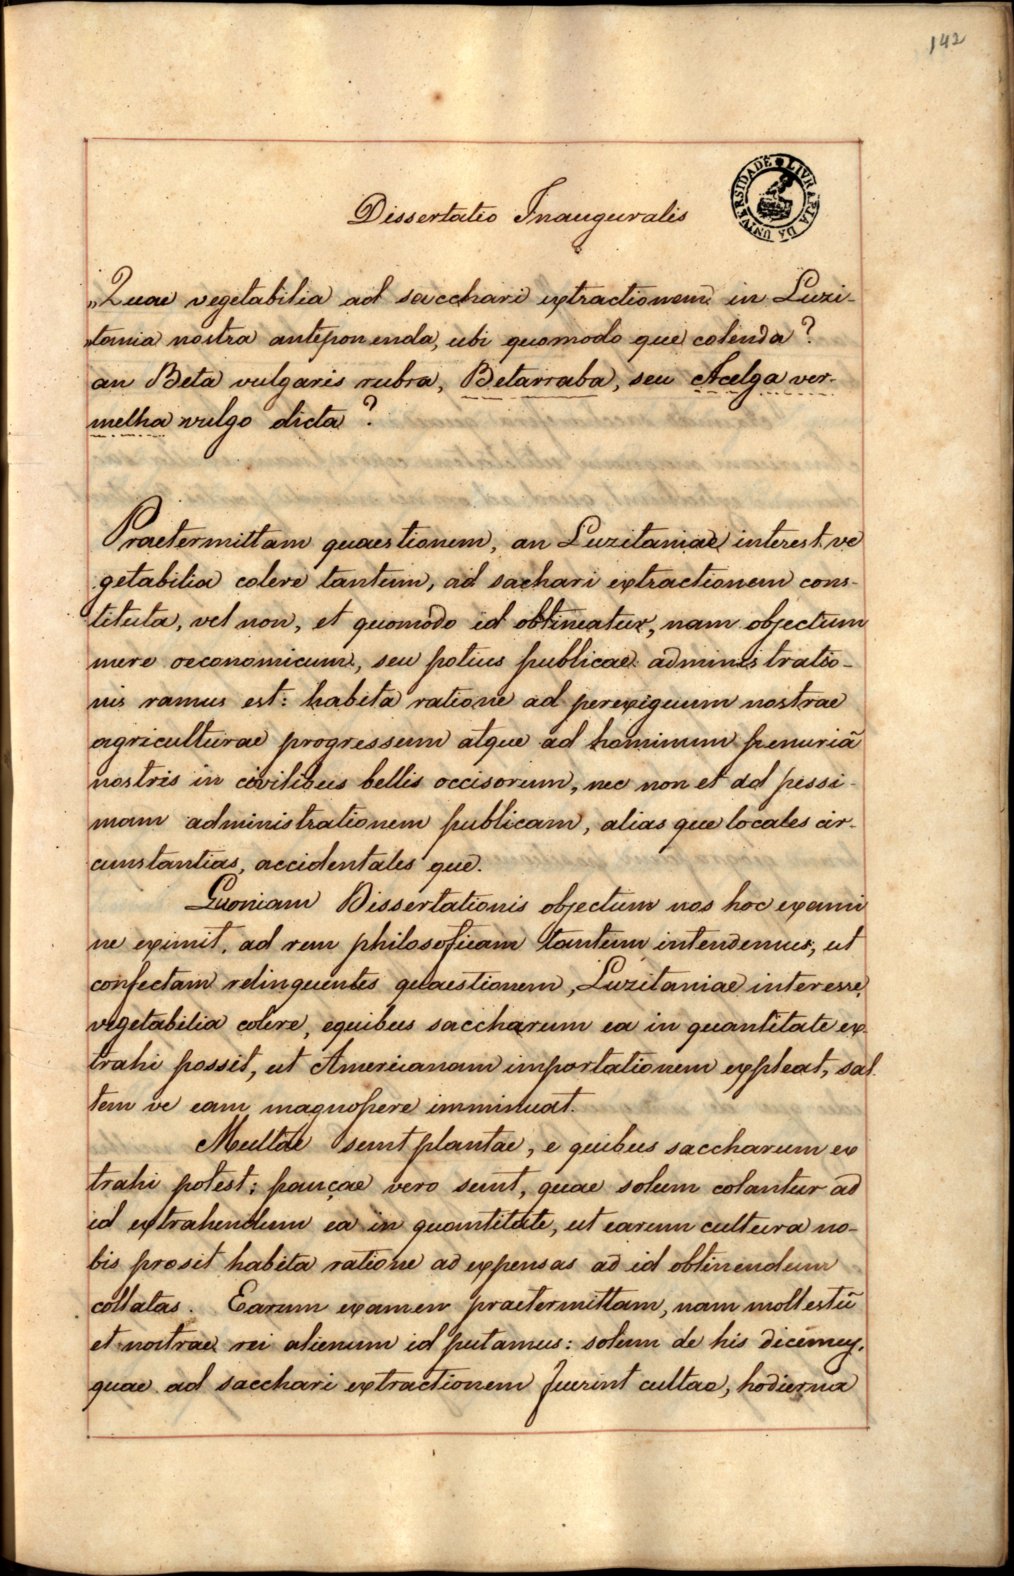 142
LIVRARIA DA UNIVERSIDADE
Dissertatio Inauguralis
„Quae vegetabilia ad sacchari extractionem in Luzi-
„tania nostra anteponenda, ubi quomodo que colenda?
an Beta vulgaris rubra, Betarraba, seu Acelga ver-
melha vulgo dicta?
Praetermittam quaestionem, an Luzitaniae interest ve
getabilia colere tantum, ad sachari extractionem cons-
tituta, vel non, et quomodo id obtineatur, nam objectum
mere oeconomicum, seu potius publicae administratio-
nis ramus est: habita ratione ad perexiguum nostrae
agriculturae progressum atque ad hominum penuriã
nostris in civilibus bellis occisorum, nec non et ad pessi-
mam administrationem publicam, alias que locales cir-
cunstantias, accidentales que.
Quoniam Dissertationis objectum nos hoc exami
ne eximit, ad rem philosoficam tantum intendemus, ut
confectam relinquentes quaestionem, Luzitaniae interesse
vegetabilia colere, equibus saccharum ea in quantitate ex
trahi possit, ut Americanam importationem expleat, sal
tem ve eam magnopere imminuat.
Multae sunt plantae, e quibus saccharum ex
trahi potest; pauçae vero sunt, quae solum colantur ad
id extrahendum ea in quantitate, ut earum cultura no-
bis prosit habita ratione ad expensas ad id obtinendum
collatas. Earum examen praetermittam, nam mollestũ
et nostrae rei alienum id putamus: solum de his dicemus,
quae ad sacchari extractionem fuerint cultae, hodierna